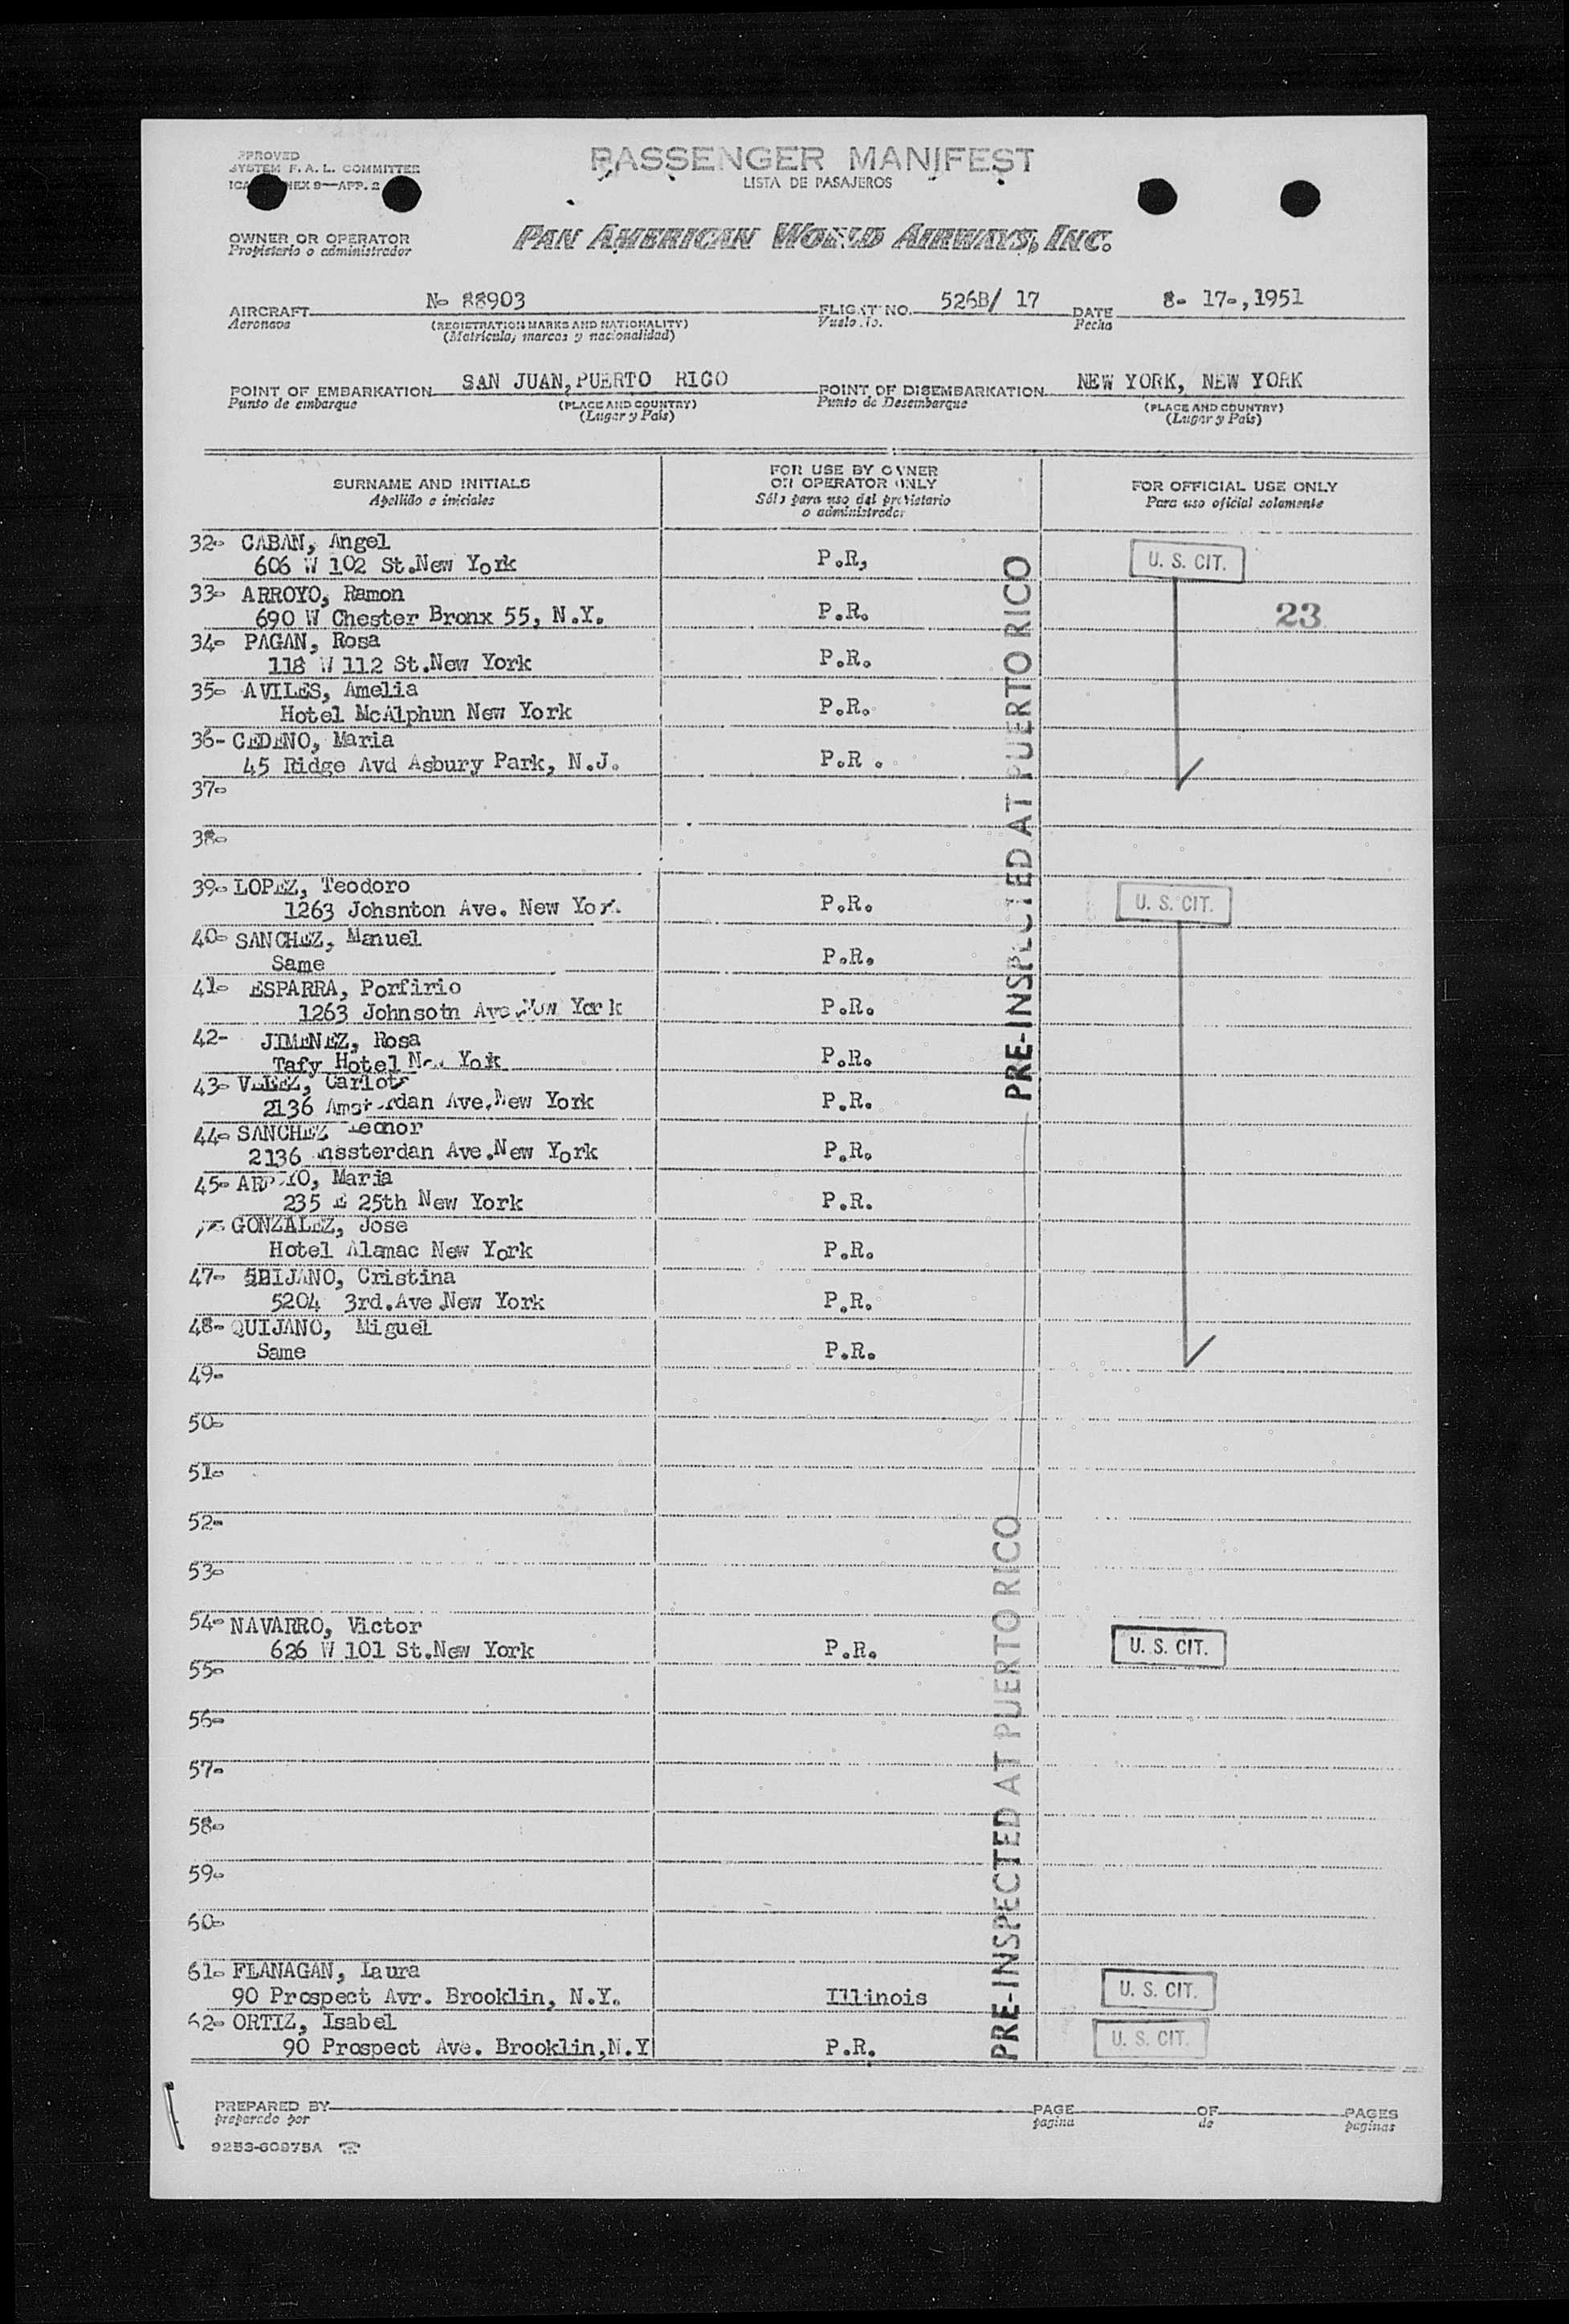 PASSENGER MANIFEST
LISTA DE PASAJEROS
SYSTEM F. A. L. COMMITTEE
OWNER OR OPERATOR
Propietario o administrador
PAN AMERICAN WORLD AIRWAYS, INC.
AIRCRAFT No 88903 FLIGHT NO. 526B/ 17 DATE 8- 17-,1951
Aeronave (REGISTRATION MARKS AND NATIONALITY) Vuelo No. Fecha
(Matricula, marcas y nacionalidad)
POINT OF EMBARKATION SAN JUAN, PUERTO RICO POINT OF DISEMBARKATION NEW YORK, NEW YORK
Punto de embarque (PLACE AND COUNTRY) Punto de Desembarque (PLACE AND COUNTRY)
(Lugar y País) (Lugar y País)
SURNAME AND INITIALS
Apellido e iniciales
FOR USE BY OWNER
OR OPERATOR ONLY
Sólo para uso del propietario
o administrador
FOR OFFICIAL USE ONLY
Para uso oficial solamente
32- CABAN, Angel
606 W 102 St.New York P.R, U. S. CIT.
33- ARROYO, Ramon
690 W Chester Bronx 55, N.Y. P.R. 23
34- PAGAN, Rosa
118 W 112 St.New York P.R.
35- AVILES, Amelia
Hotel McAlphun New York P.R.
36- CEDENO, Maria
45 Ridge Avd Asbury Park, N.J. P.R .
37-
38-
39- LOPEZ, Teodoro
1263 Johsnton Ave. New Yor. P.R. U. S. CIT.
40- SANCHEZ, Manuel
Same P.R.
41- ESPARRA, Porfirio
1263 Johnsotn Ave.New York P.R.
42- JIMENEZ, Rosa
Tafy Hotel New York P.R.
43- VELEZ, Carlota
2136 Amsterdan Ave.New York P.R.
44- SANCHEZ Leonor
2136 Ave.New York P.R.
45- ARROYO, Maria
235 E 25th New York P.R.
GONZALEZ, Jose
Hotel Alamac New York P.R.
47- Cristina
5204 3rd.Ave.New York P.R.
48- QUIJANO, Miguel
Same P.R.
49-
50-
51-
52-
53-
54- NAVARRO, Victor
626 W 101 St.New York P.R. U. S. CIT.
55-
56-
57-
58-
59-
60-
61- FLANAGAN, Laura
90 Prospect Avr. Brooklin, N.Y. Illinois U. S. CIT.
62- ORTIZ, Isabel
90 Prospect Ave. Brooklin,N.Y P.R. U. S. CIT.
PRE-INSPECTED AT PUERTO RICO
PRE-INSPECTED AT PUERTO RICO
PREPARED BY PAGE OF PAGES
preparado por pagina de paginas
9253-60975A